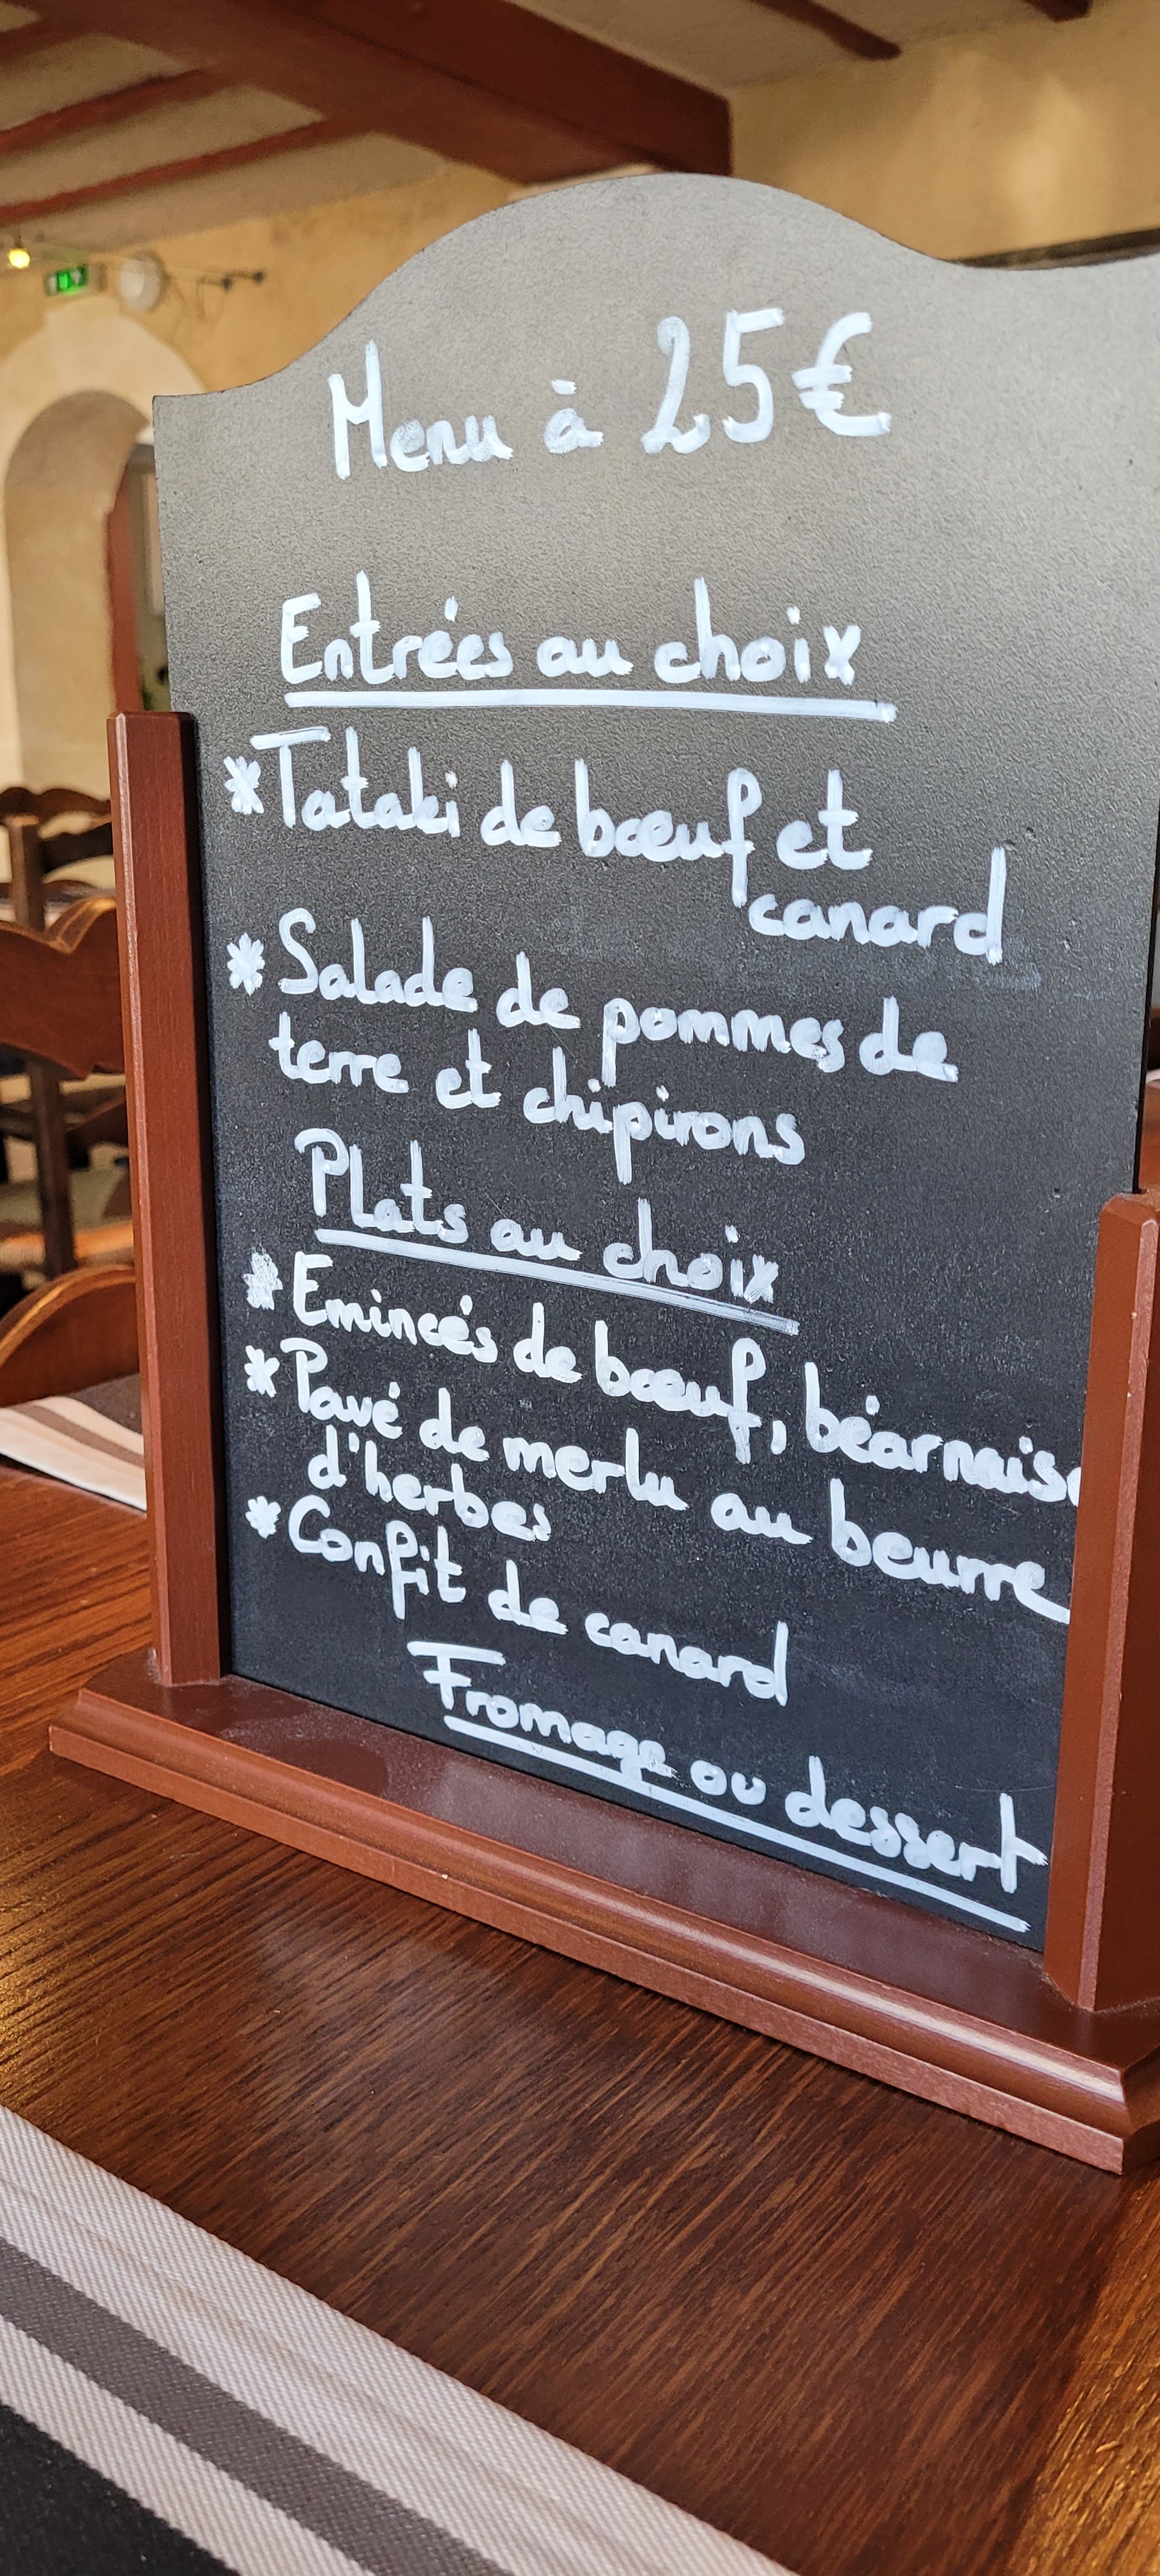 Menu à 25€
Entrées au choix
* Tataki de bœuf et
canard
* Salade de pommes de
terre et chipirons
Plats au choix
* Emincés de bœuf, béarnaise
* Pavé de merlu au beurre
d'herbes
* Confit de canard
Fromage ou dessert